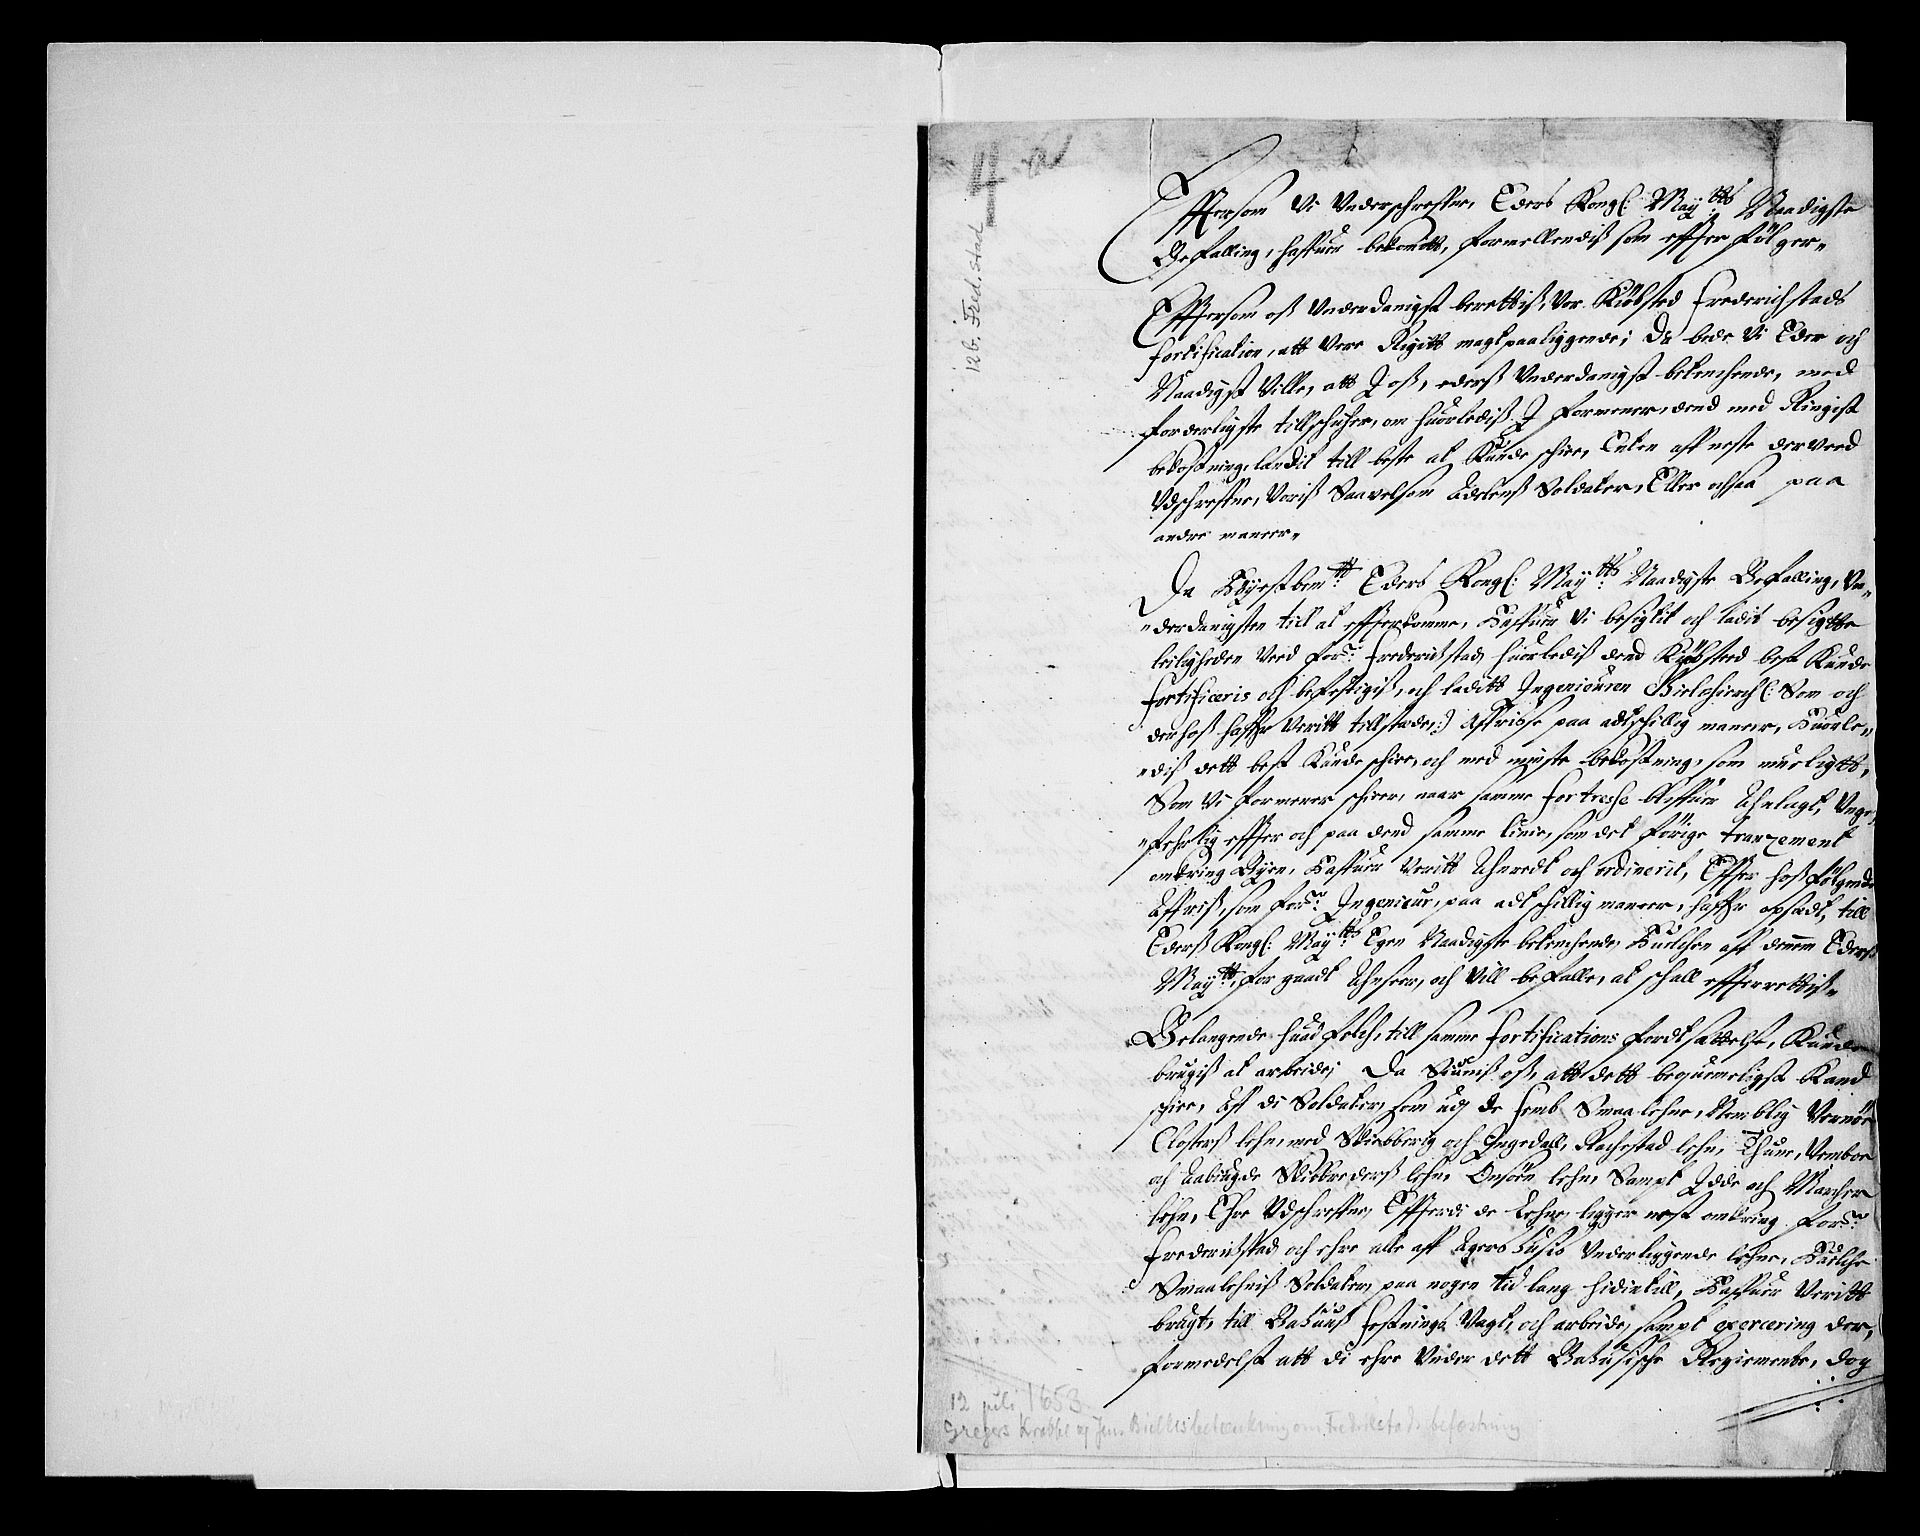 126. Fred.stad
Effttersom Vi Underschreffne, Eders Kongl: May:tts Naadigste
Befalling, haffuer bekomett, formellendiß som effter følger„
Effttersom oß Underdanigst berettiß, Vor Kiøbsted Frederichstads
fortification, att Vere Rigitt magtpaaliggende; Da bede Vi Eder och
Naadigst Ville, att I oß, ederß Underdanigst betenchende, med
forderligste tillschicher, om huorlediß I formener, dend med Ringist
bekostning, landit till beste at Kunde schiee, Enten aff neste derveed
Udschreffne, Voriß Saavelsom Adelenß Soldater, Eller ochsaa paa
andre maneer„
Da Høyestbem:tt Eders Kongl: May:tts Naadigste Befalling, Un„
„derdanigsten till at effterkomme, Haffuer Vi besigtit och ladit besigtte
leiligheden Veed for:ne Frederichstad, huorlediß dend Kiøbsted best Kunde
fortificeris och befestigiß, och laditt Ingenieuren (: Som och
derhoß haffr Veritt tillstede,:) Affridse paa adtschillig maneer, Huorle„
„diß dett best Kunde schiee, och med minste bekostning, som mueligtt,
Som Vi formener scheer, naar samme fortresse bliffuer Anlagt, Unge„
„fehrlig effter och paa dend samme linie, som det førige tranzement
omkring Byen, Haffuer Veritt Anredt och ordinerit, Effter hoßfølgende
Affriß, som for:ne Ingenieur, paa adtschillig maneer, haffr opsadt, till
Ederß Kongl: May:tts Egen Naadigste betenchende, Huilchen aff dennem Ederß
May:tt for gaadt Anseer, och Vill befalle, at schall effterrettiß„
Belangende huad folch, till samme fortifications fordtsættelse, Kunde
brugiß at arbeide; Da Siuniß oß, att dett bequemeligst Kand
schiee, Aff di Soldater, som udj de femb Smaalehne, Nemblig Vernøe
Closterß lehn, med Skiebberig och Ingedall, Rachestad lehn, Thune, Vembøe
och Aabyugde Skibrederß lehn, Onsøen lehn, Sampt Idde och Marcher
lehn, Ehre Udschreffne, Effterdi de Lehne ligger nest omkring for:ne
Frederichstad, och ehre alle aff Agershusis Underliggende lehne, Huilche
Smaalehniß Soldater, paa nogen tid lang hidintill, Haffuer Veritt
brugt, till Bahuuß festnings Vagt, och arbeide, sampt exercering der,
formedelst att di ehre Under dett Bahusische Regiemente, dog
12 juli 1653.
Gregers Krabbe og Jens Bielkes betænkning om Fredrikstads befæstning